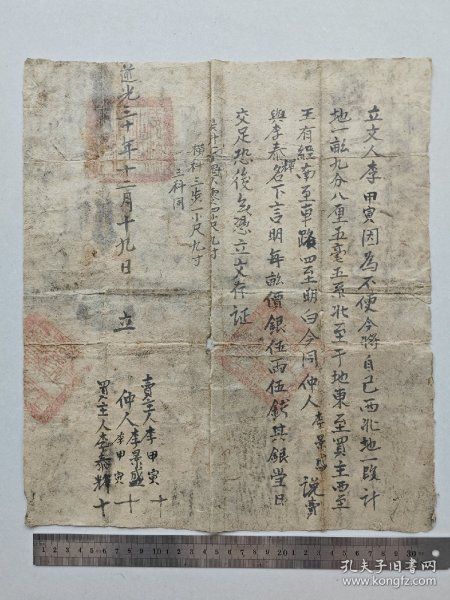 立文人李甲寅因為不便今將自己西北地一段計
地一畝九分八厘五毫五系北至于地東至買主西至
王有經南至車路四至明白今同仲人李景盛說賣
與李泰輝名下言明每畝價銀伍兩伍錢其銀當日
交足恐後無憑立文存証
橫科三步一小尺九寸
三科同
道光二十年十二月十九日 立
賣主人李甲寅 十
仲人李景盛 李甲寅 十
買主人李泰輝 十
孔夫子旧书网
www.kongfz.com